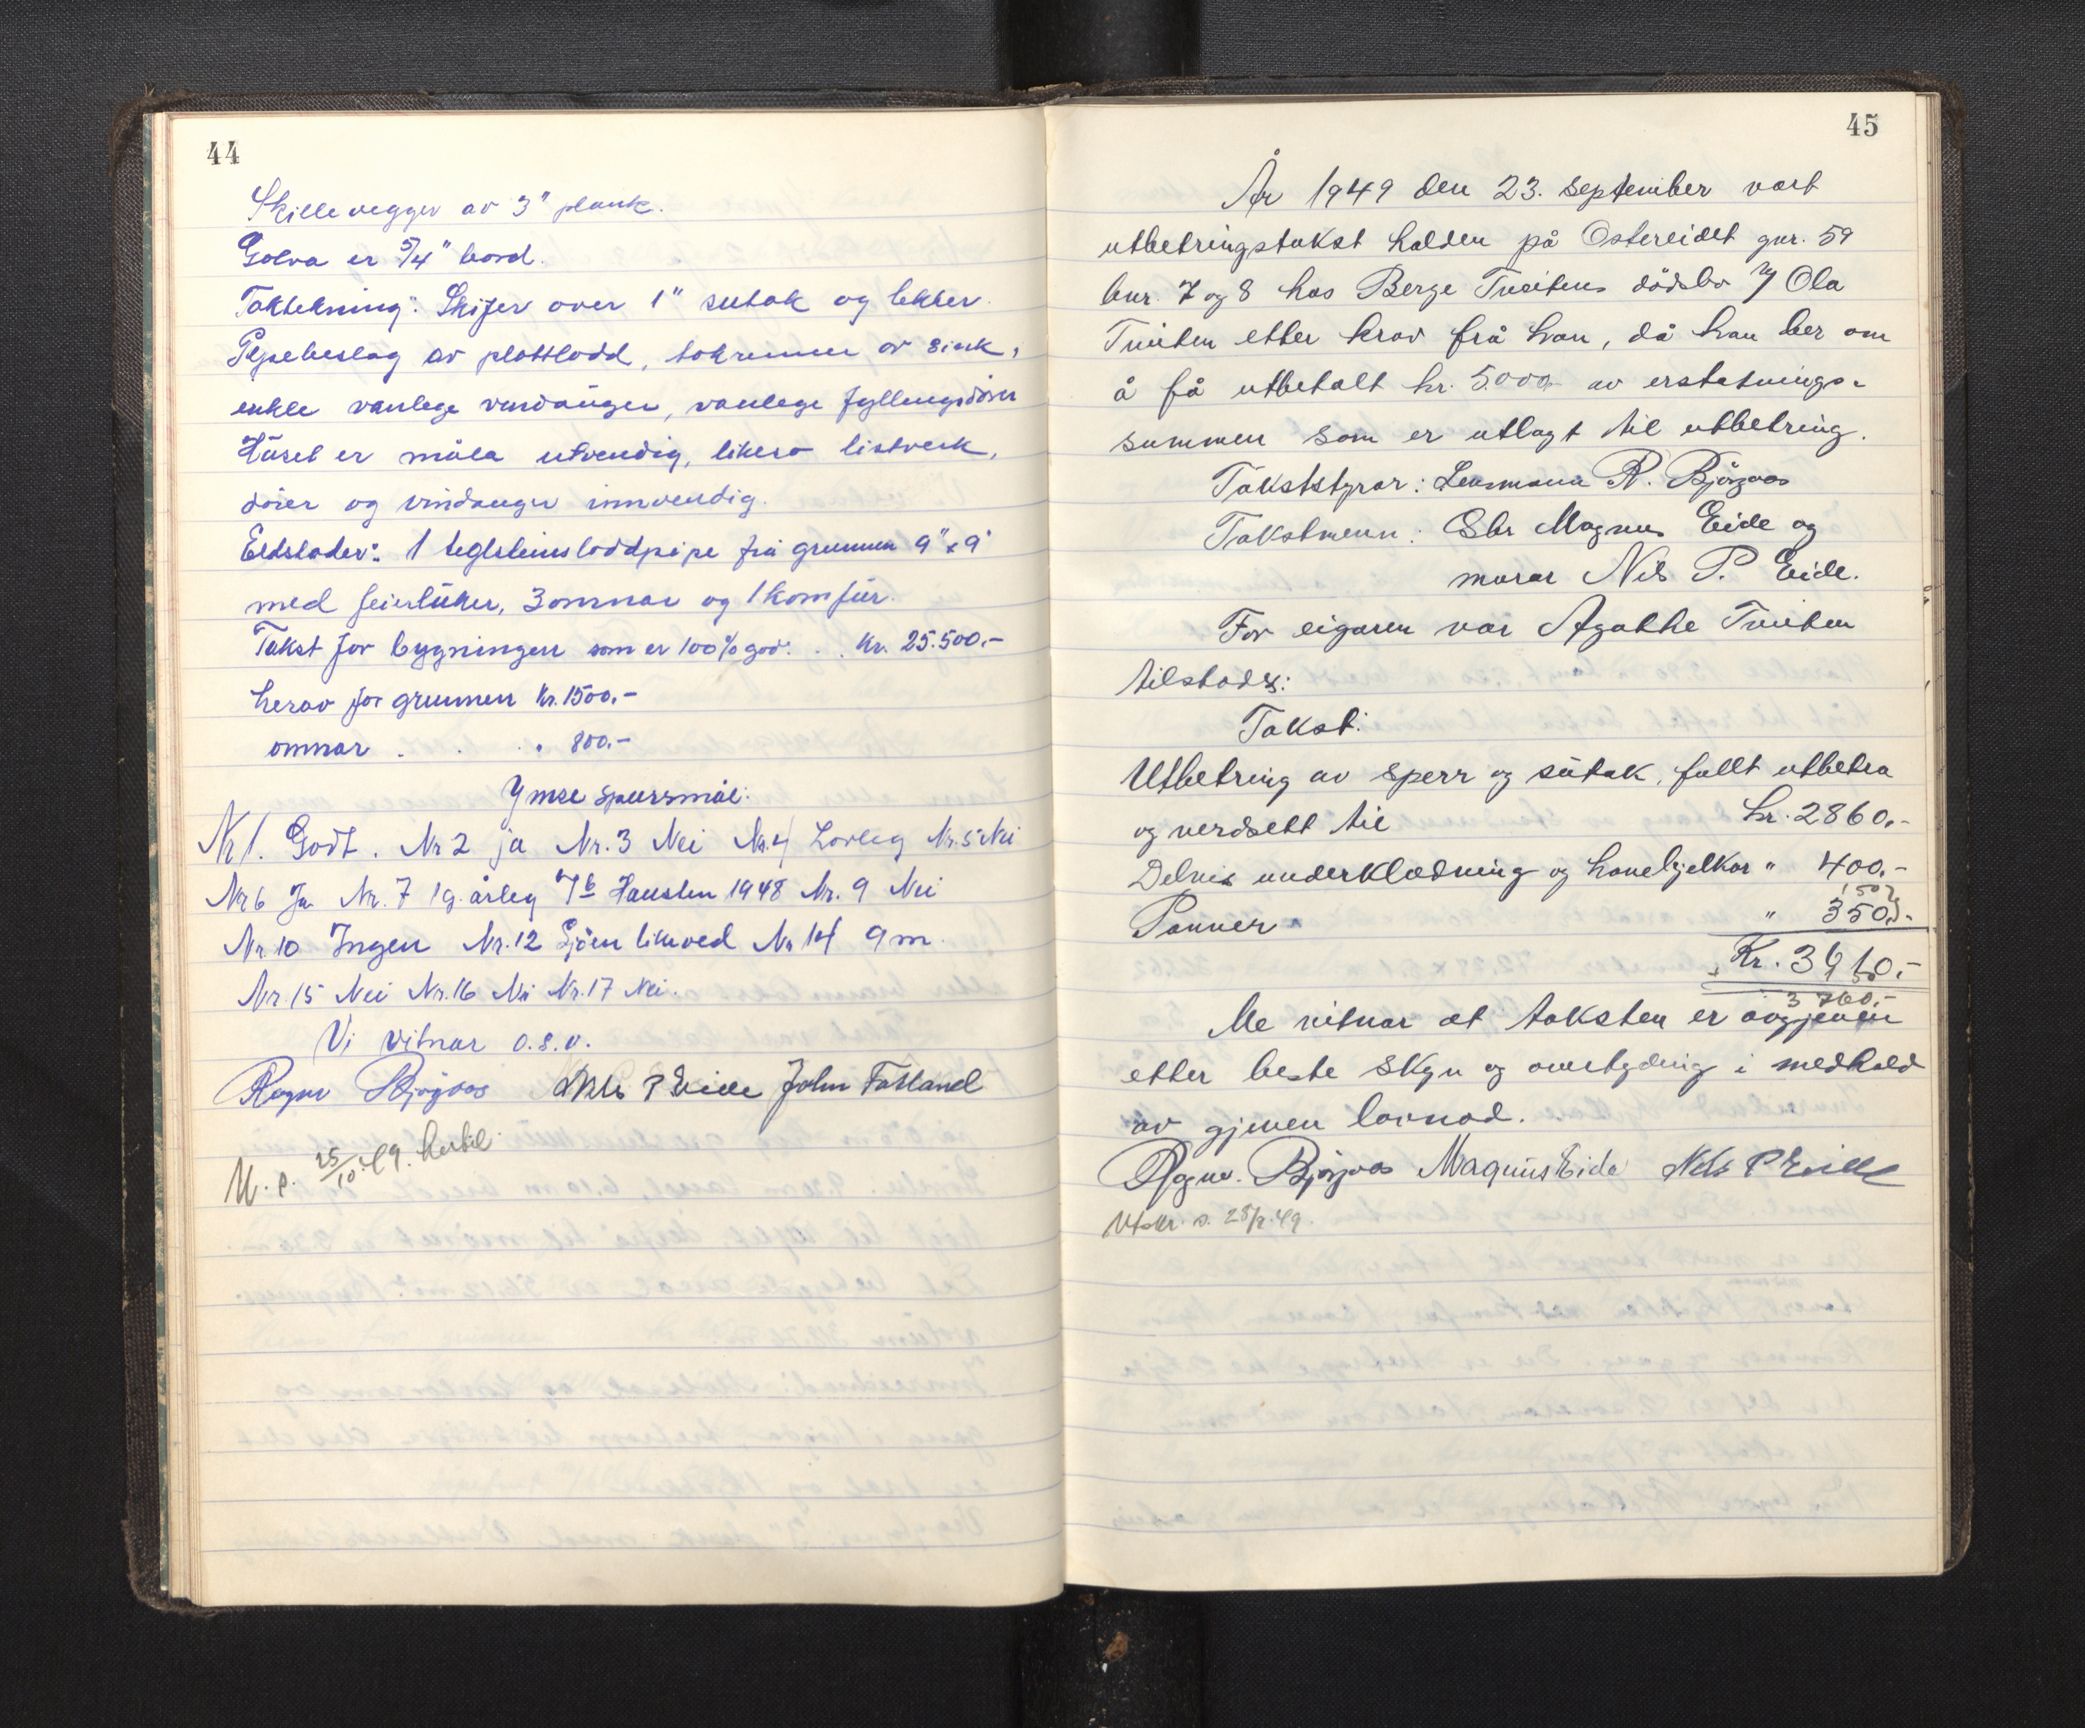 44
Skillevegger av 3" plank.
Golva er 5/4" bord.
Taktekning: Skifer over 1" sutak og lekter.
Pipebeslag av plattlodd, takrenner av sink,
enkle vanlege vindauger, vanlege fyllingsdører
Huset er måla utvendig, likeso listverk,
dører og vindauger innvendig.
Eldstader: 1 teglsteinsloddpipe frå grunnen 9" x 9"
med feierluker, 3 omnar og 1 komfür.
Takst for bygningen som er 100% god. . . kr. 25.500.-
herav for grunnen kr. 1500.-
omnar . . . " 800.-
Ymse spursmål:
Nr 1. Godt. Nr 2 ja Nr. 3 Nei Nr. 4 Lovleg Nr. 5 Nei
Nr 6 Ja Nr. 7 1 g. årleg 7b Hausten 1948 Nr. 9 Nei
Nr. 10 Ingen Nr. 12 Sjøen likeved Nr 14 9 m.
Nr. 15 Nei Nr. 16 Nei Nr. 17 Nei.
Vi vitnar o.s.v.
Ragnv Bjørgaas Nils P Eide John Fatland
U. s. 25/10.49.
45
År 1949 den 23. september vart
utbetringstakst halden på Ostereidet gnr. 59
bnr. 7 og 8 hos Berge Tveitens dödsbo v/ Ola
Tveiten etter krav frå han, då han ber om
å få utbetalt kr. 5.000,- av erstatnings-
summen som er utlagt til utbetring.
Takststyrar: Lensmann R. Bjørgaas
Takstmenn: Sbr Magnus Eide og
murar Nils P. Eide.
For eigaren var Agathe Tveiten
tilstades:
Takst:
Utbetring av sperr og sutak, fullt utbetra
og verdsett til kr. 2860.-
Delvis underklædning og hanebjelkar " 400.-
Panner " 350.-
Kr. 3610.-
3760.-
Me vitnar at taksten er avgjeven
etter beste skyn og overtyding i medhald
av gjeven lovnad.
Ragnv. Bjørgaas Magnus Eide Nils P Eide
Utskr. s. 28/9.49.